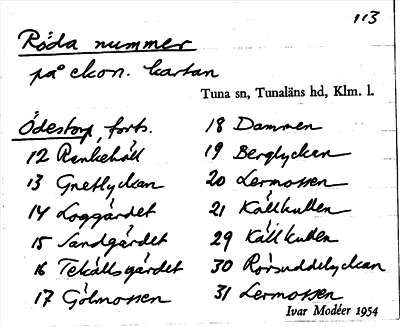 113
Röda nummer
på ekon. kartan
Tuna sn, Tunaläns hd, Klm. l.
Ödestorp, forts.
12 Renkehåll
13 Gnetlyckan
14 Loggärdet
15 Sandgärdet
16 Tekållsgärdet
17 Gölmossen
18 Dammen
19 Berglyckan
20 Lermossen
21 Kållkullen
29 Kållkullen
30 Rörsuddelyckan
31 Lermossen
Ivar Modéer 1954